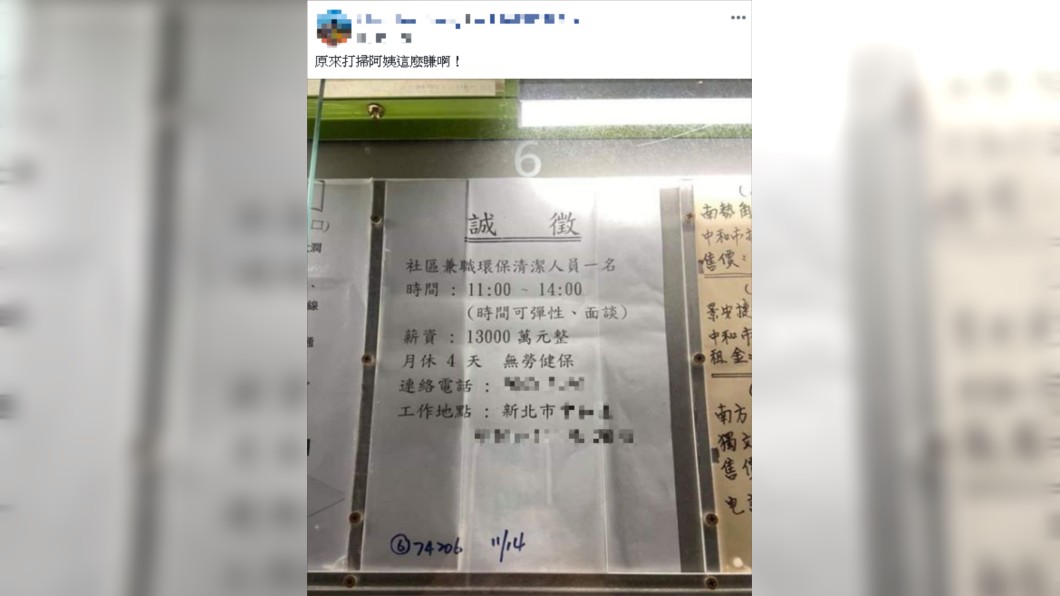 原來打掃阿姨這麼賺啊！
6
誠 徵
社區兼職環保清潔人員一名
時間：11:00 ~ 14:00
(時間可彈性、面談)
薪資：13000 萬元整
月休 4 天 無勞健保
連絡電話：
工作地點：新北市
⑥74206 11/14
口)
線
南勢角
中和市
售價：
景安捷
中和市
租金
南方
獨
售價
电